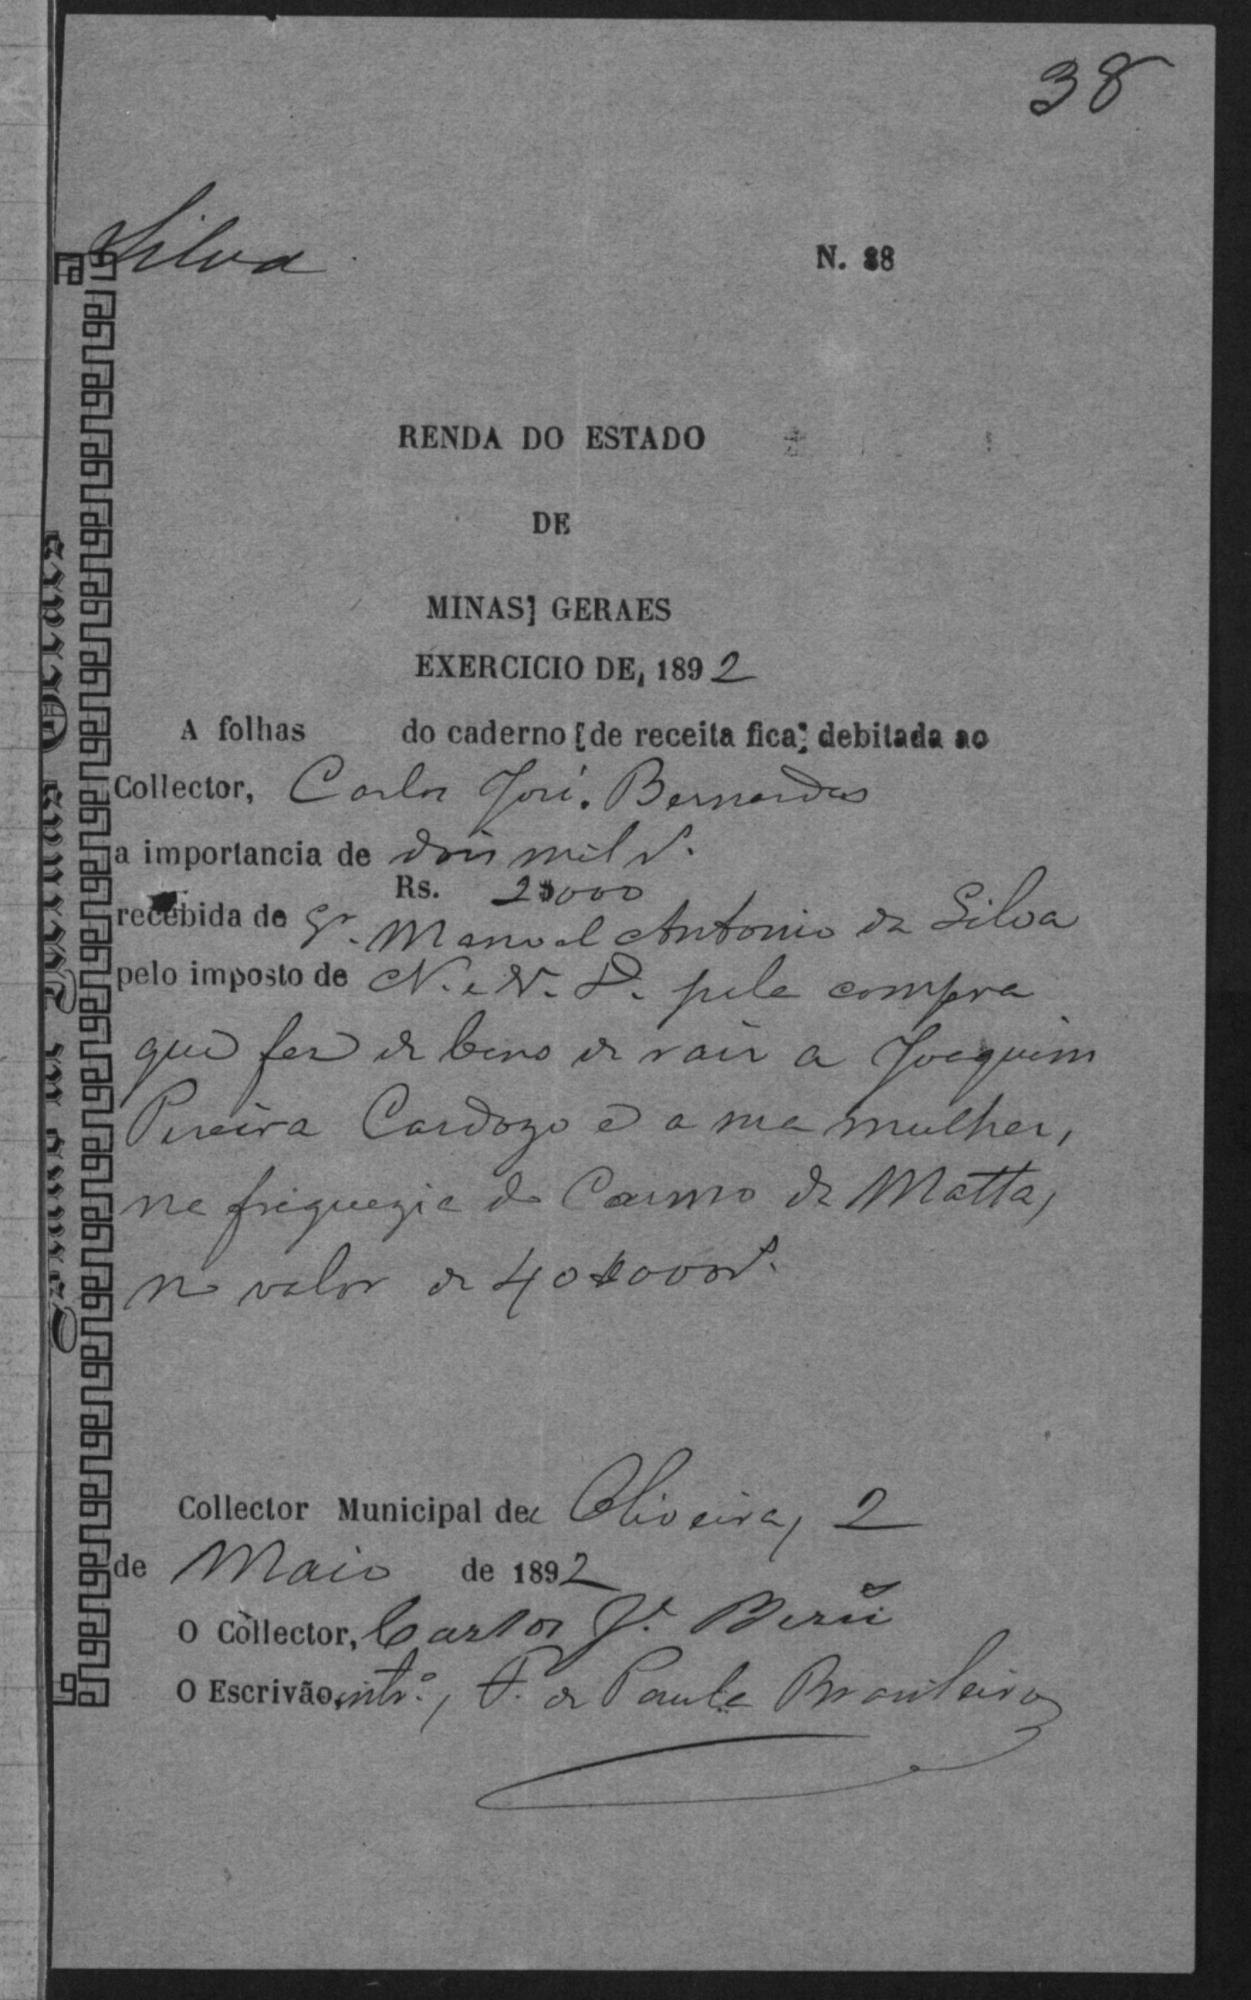 38
Silva
N. 38
RENDA DO ESTADO
DE
MINAS] GERAES
EXERCICIO DE, 1892
A folhas do caderno [de receita fica; debitada ao
Collector, Carlos José. Bernardes
a importancia de dois mil rs.
Rs. 2$000
recebida de Sr. Manoel Antonio da Silva
pelo imposto de N. e V. D. pela compra
que fez de bens de raiz a Joaquim
Pereira Cardozo e a sua mulher,
na freguezia do Carmo da Matta,
no valor de 40$000 rs.
Collector Municipal de Oliveira, 2
de Maio de 1892
O Collector, Carlos J.
O Escrivão, intr.º, F. de Paula Brasileiro